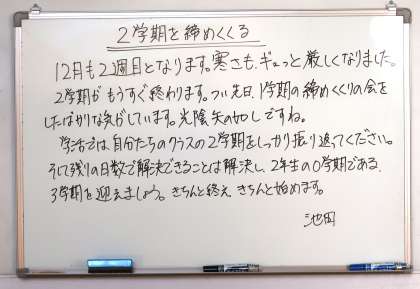 2学期を締めくくる
12月も2週目となります。寒さも、ギュっと厳しくなりました。
2学期がもうすぐ終わります。つい先日、1学期の締めくくりの会を
したばかりな気がしています。光陰矢の如しですね。
学活では、自分たちのクラスの2学期をしっかり振り返ってください。
そして残りの日数で解決できることは解決し、2年生の0学期である、
3学期を迎えましょう。きちんと終え、きちんと始めます。
池田